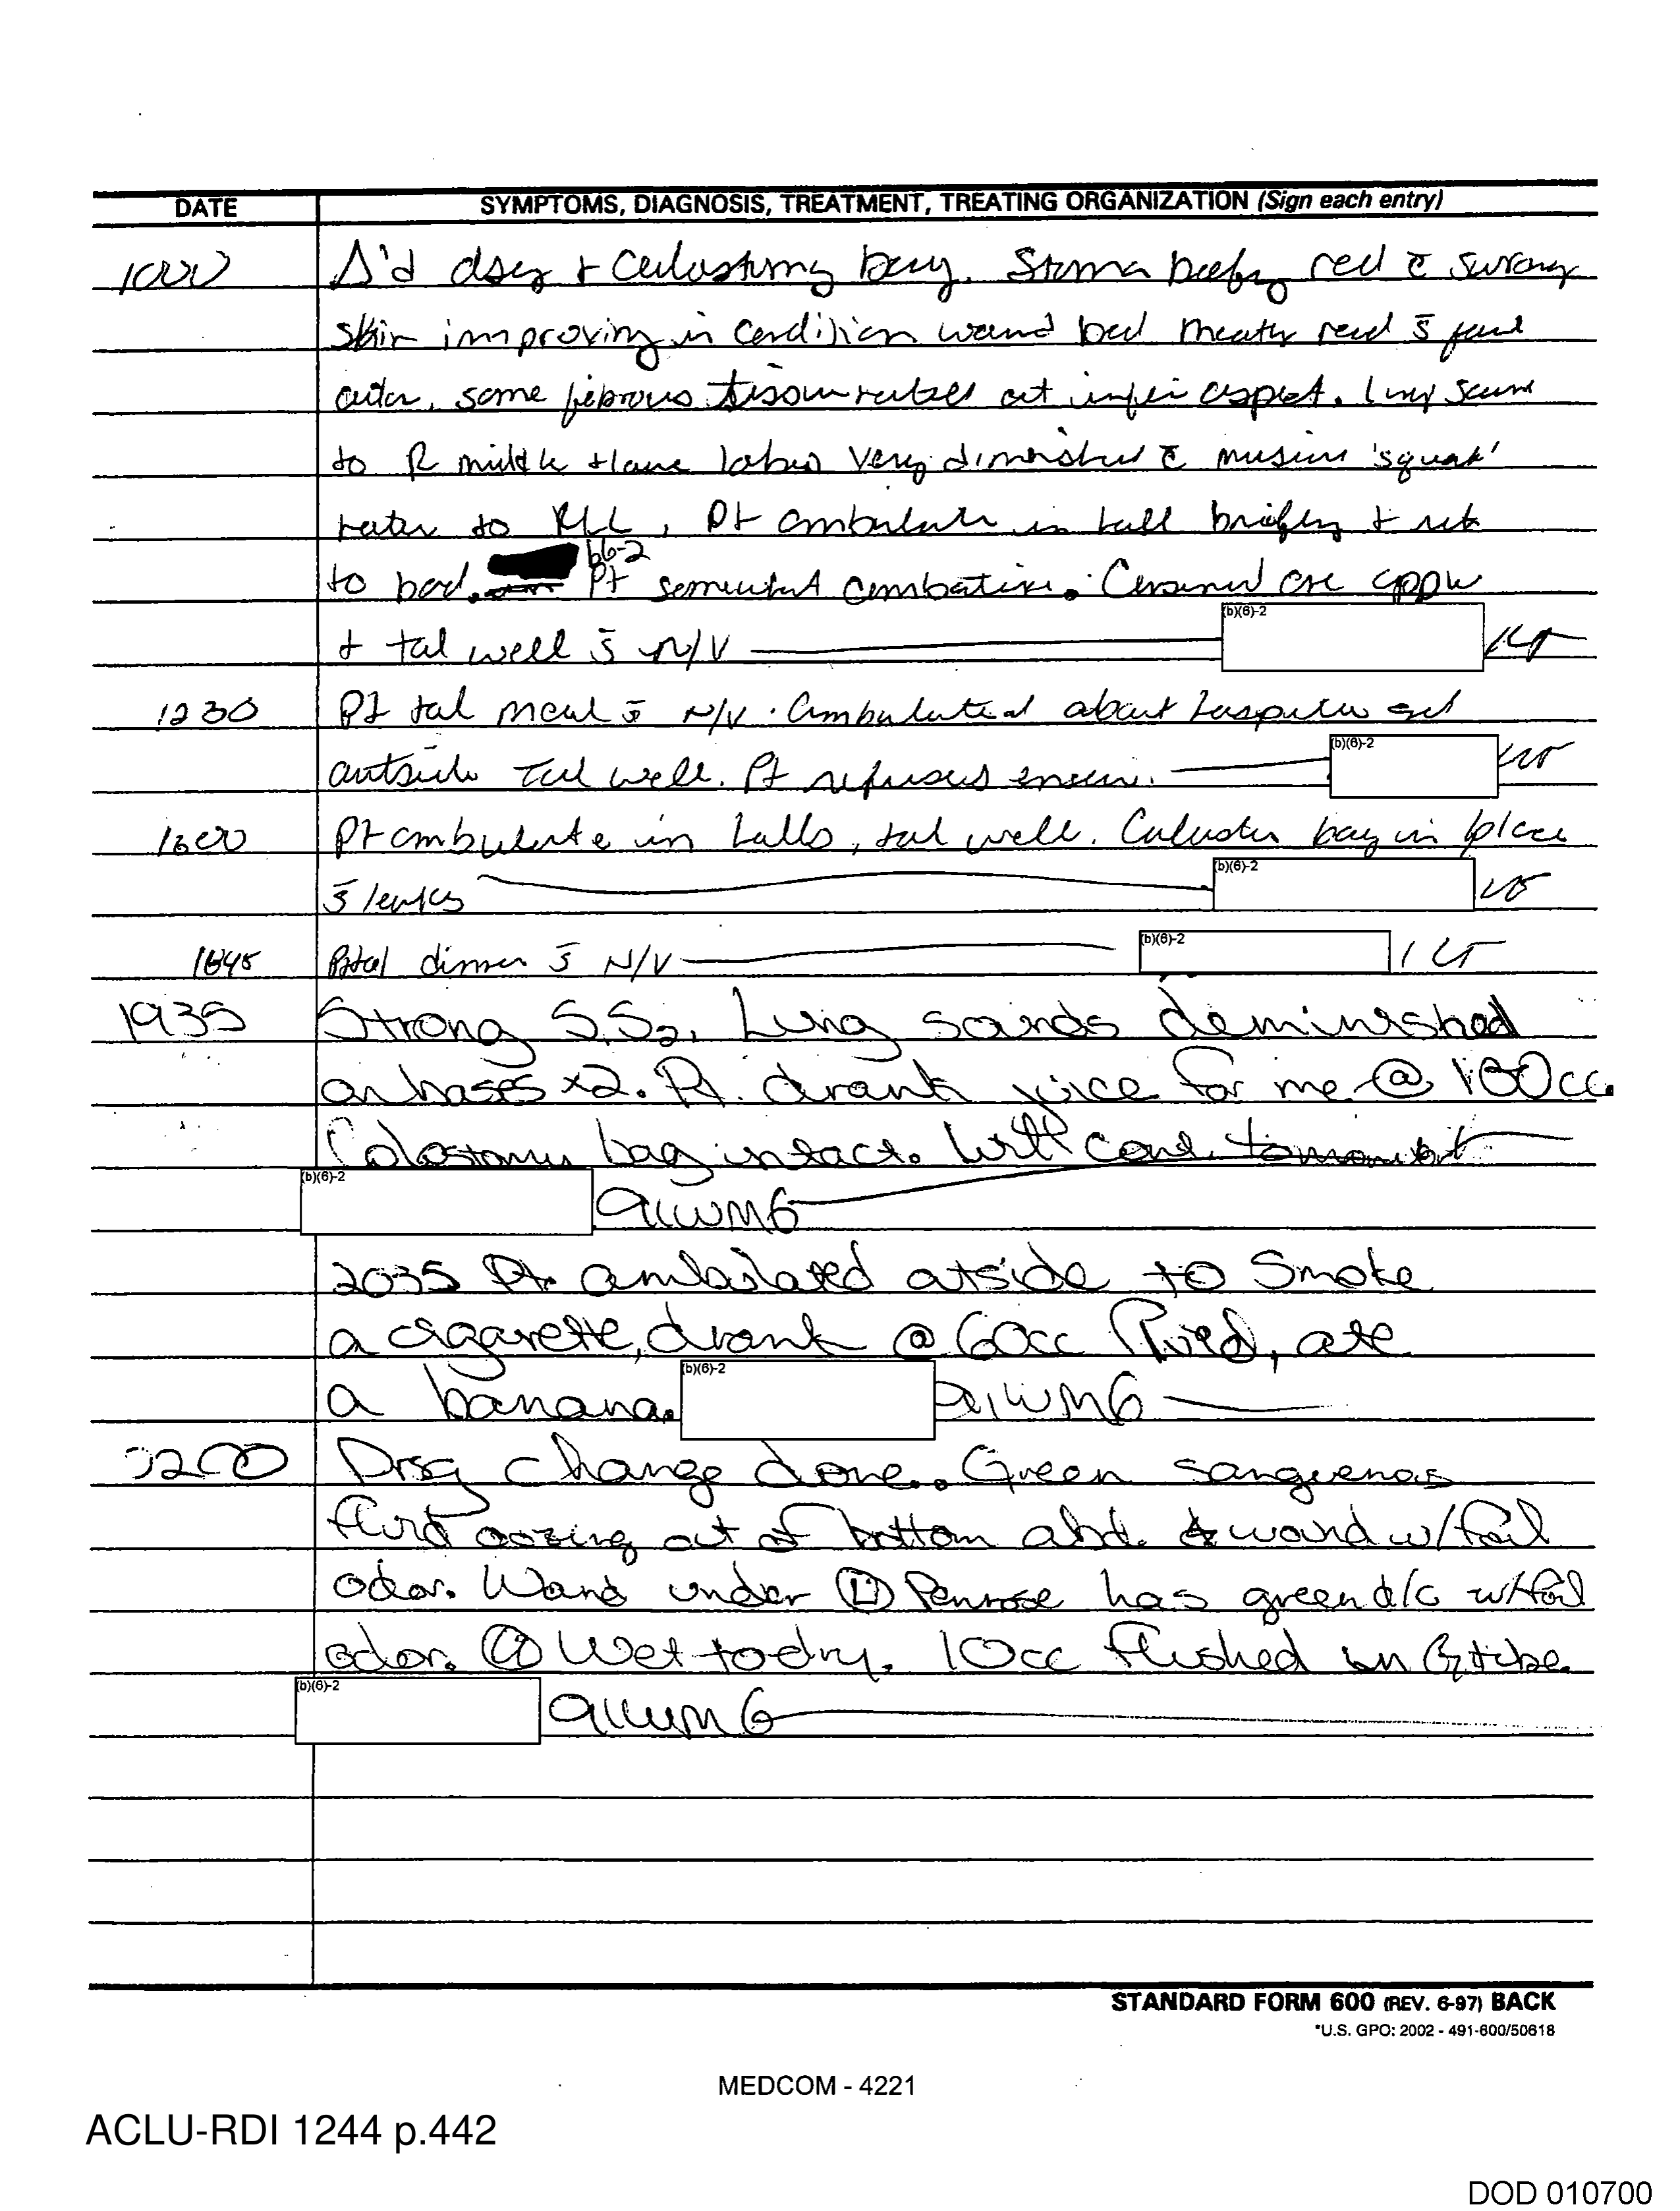 DATE SYMPTOMS, DIAGNOSIS, TREATMENT, TREATING ORGANIZATION (Sign each entry)
1000 Δ'd dsg + Colostomy bag. Stoma beefy red c̄
skin improving in condition wound bed meaty red s̄ foul
odor, some fibrous at aspect. lung
to R middle + lower lobes very diminished c̄ 'squeak'
to RLL, Pt ambulate in hall briefly +
to bed. b6-2 Pt somewhat combative.
+ tol well s̄ N/V (b)(6)-2
1230 Pt tol meal s̄ N/V. Ambulated about hospital and
outside Tol well. Pt refuses (b)(6)-2
1600 Pt ambulate in halls, tol well. bag in place
s̄ leaks (b)(6)-2
1845 Pt tol dinner s̄ N/V (b)(6)-2
1935 Strong S,S2, Lung sounds deminished
on bases x2. Pt. drank juice for me @ 180cc
Colostomy bag intact. Will cont. to
(b)(6)-2 91WM6
2035 Pt. ambulated outside to Smoke
a cigarette, drank @ 60cc fluid, ate
a banana. (b)(6)-2 91WM6
2200 Drsg change done. Green sanguenous
fluid oozing out of bottom abd. wound w/foul
odor. Wound under Ⓛ Penrose has green d/c w/foul
odor. Wet to dry. 10cc flushed in G tube.
(b)(6)-2 91WM6
STANDARD FORM 600 (REV. 6-97) BACK
*U.S. GPO: 2002 - 491-600/50618
MEDCOM - 4221
ACLU-RDI 1244 p.442
DOD 010700